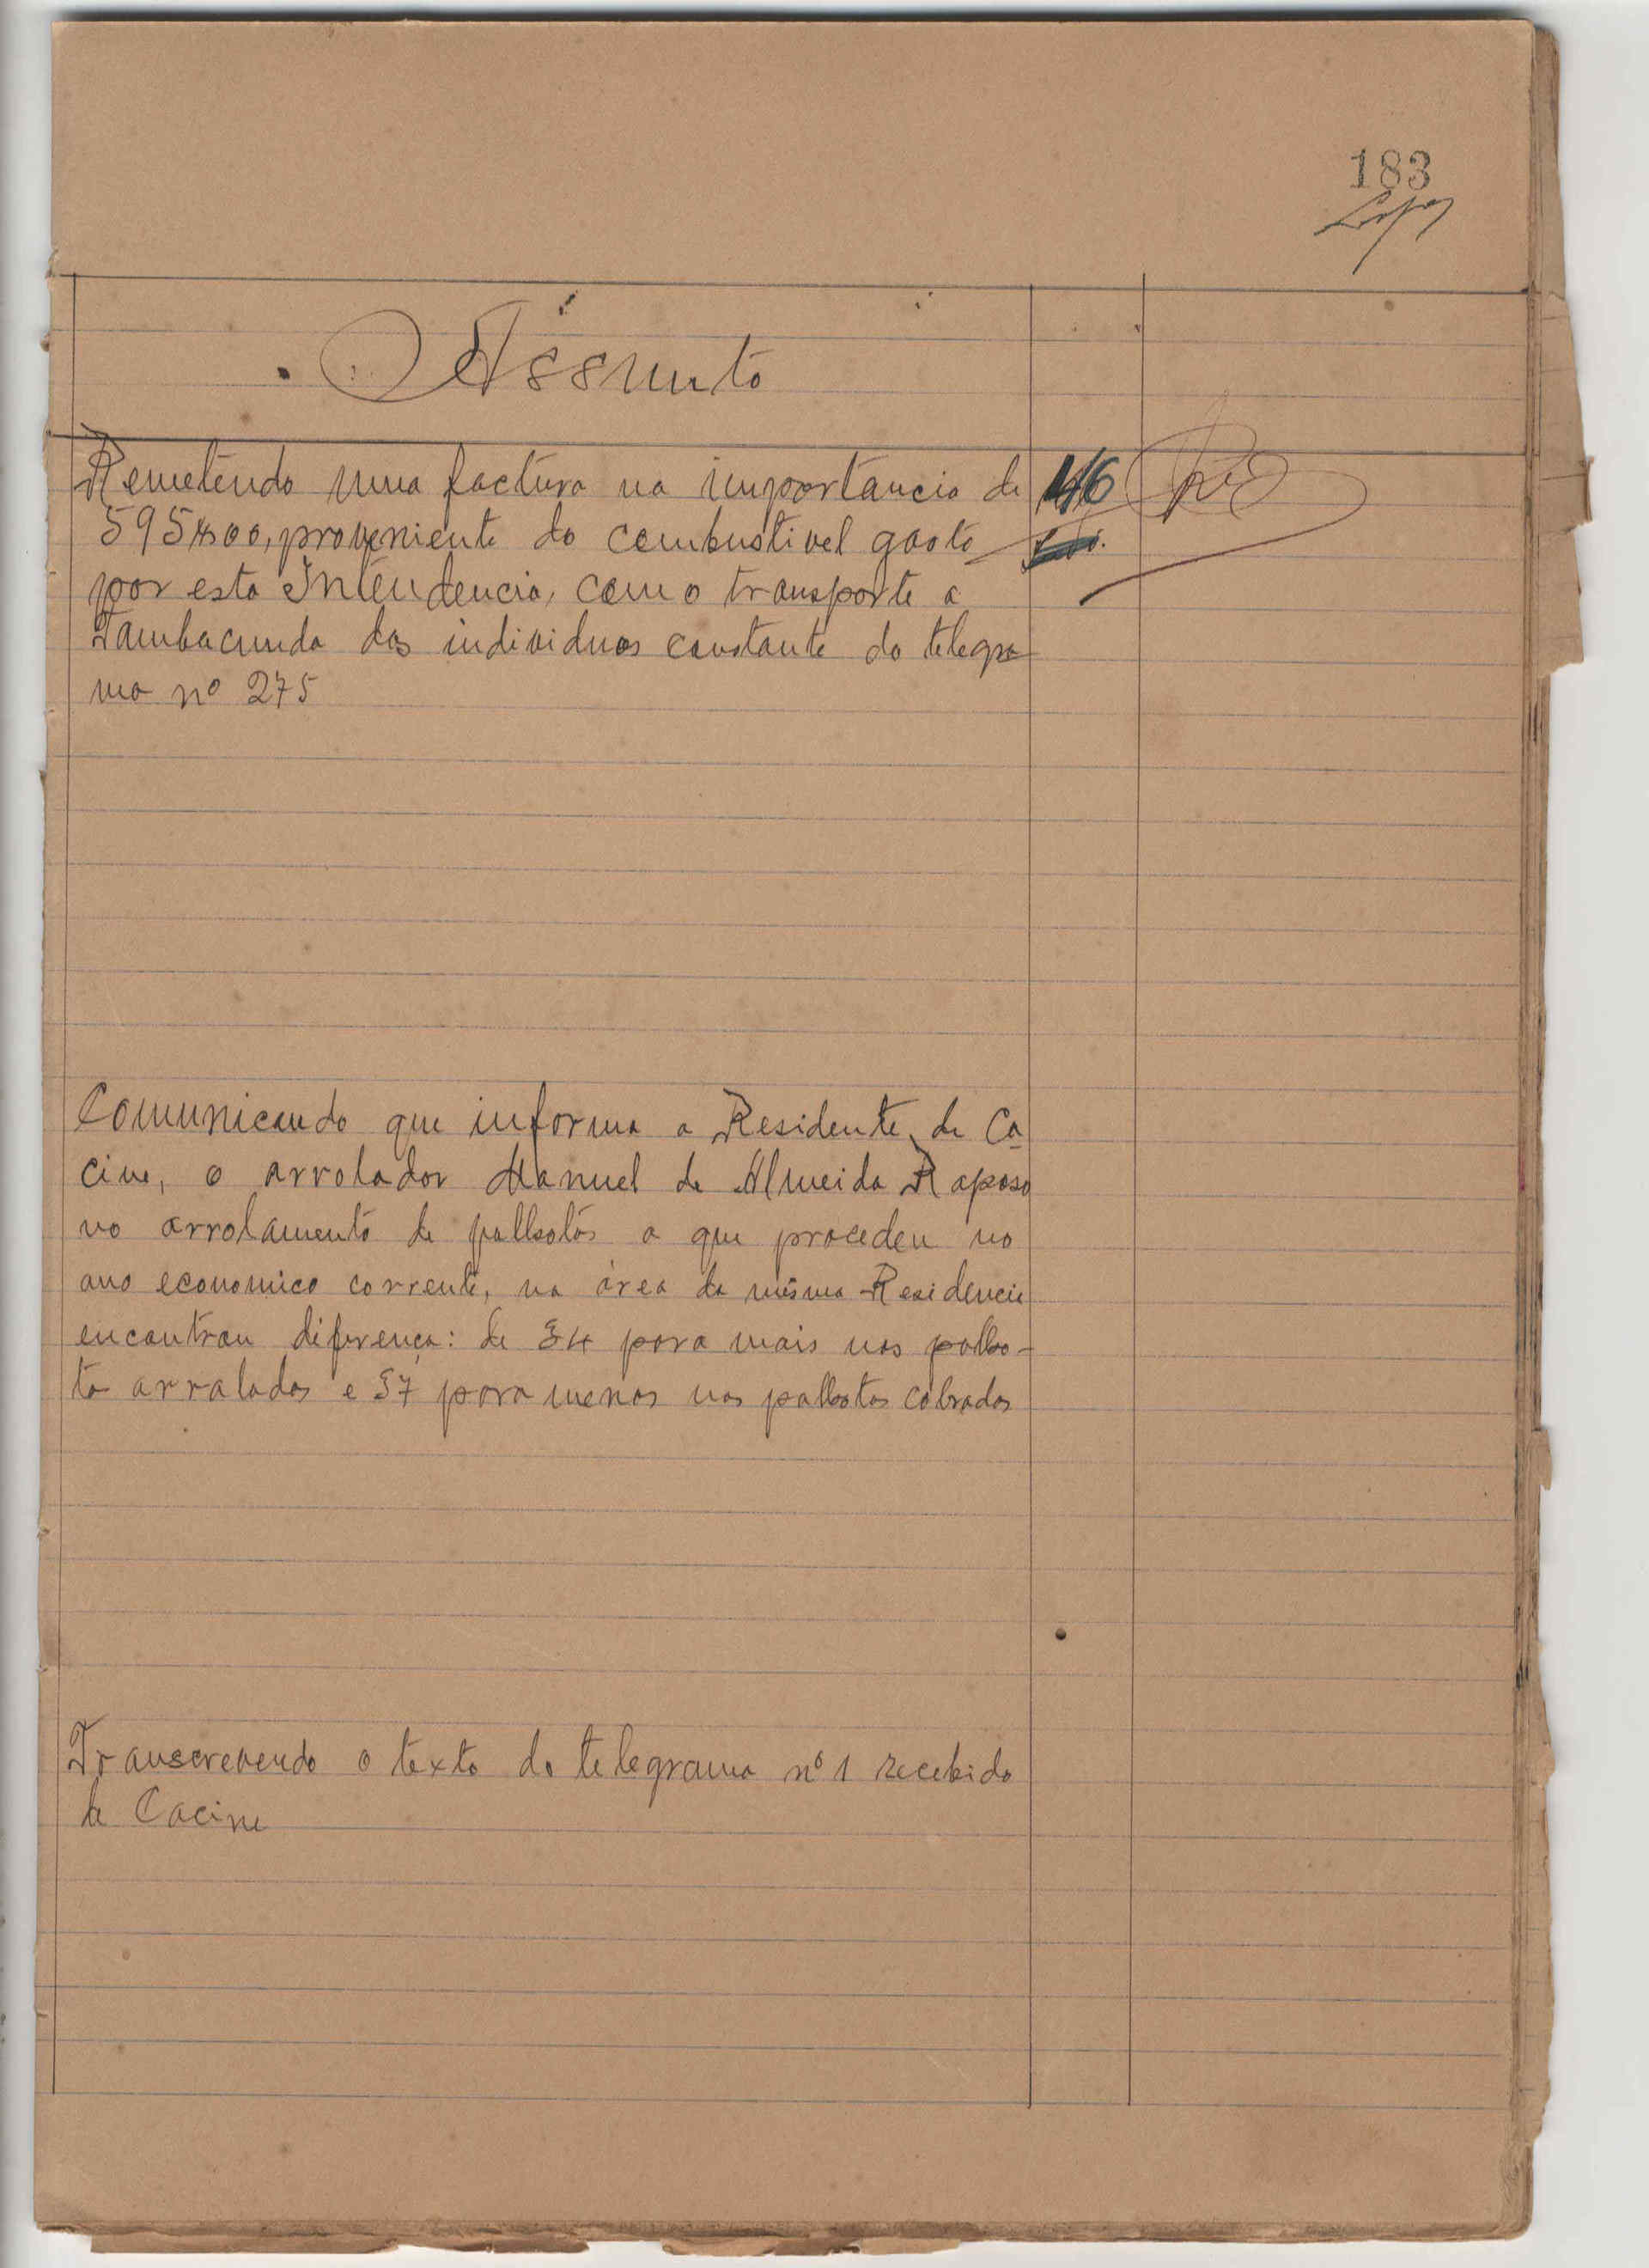 183
Assunto
Remetendo uma factura na importancia de 146
595$00, proveniente do combustivel gasto
por esta Intendencia, com o transporte a
Tambacunda dos individuos constante do telegra
ma nº 275
Comunicando que informa o Residente de Ca
cine, o arrolador Manuel de Almeida Raposo
no arrolamento de palhotas a que procedeu no
ano economico corrente, na área da mesma Residencia
encontrou diferença: de 34 para mais nas palho-
ta arroladas e 37 para menos nas palhotas cobradas
Transcrevendo o texto do telegrama nº 1 recebido
de Cacine